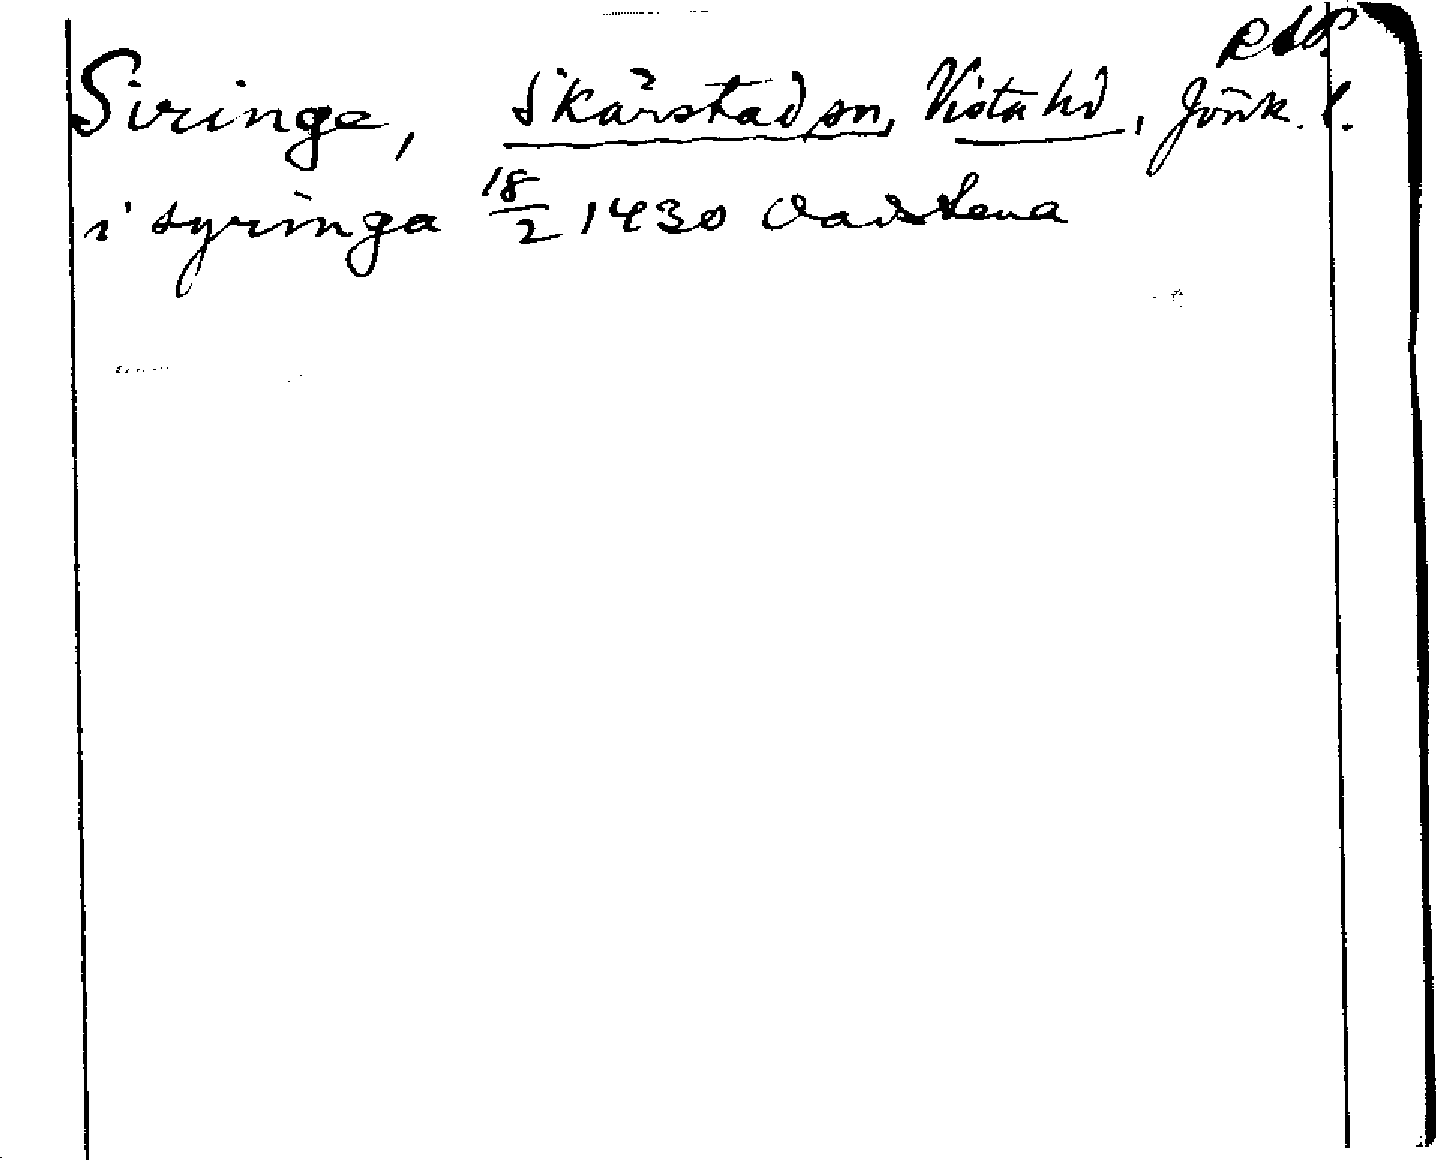 RAP.
Siringe, Skärstad sn, Vista hd, Jönk. l.
i syringa 18/2 1430 Vadstena